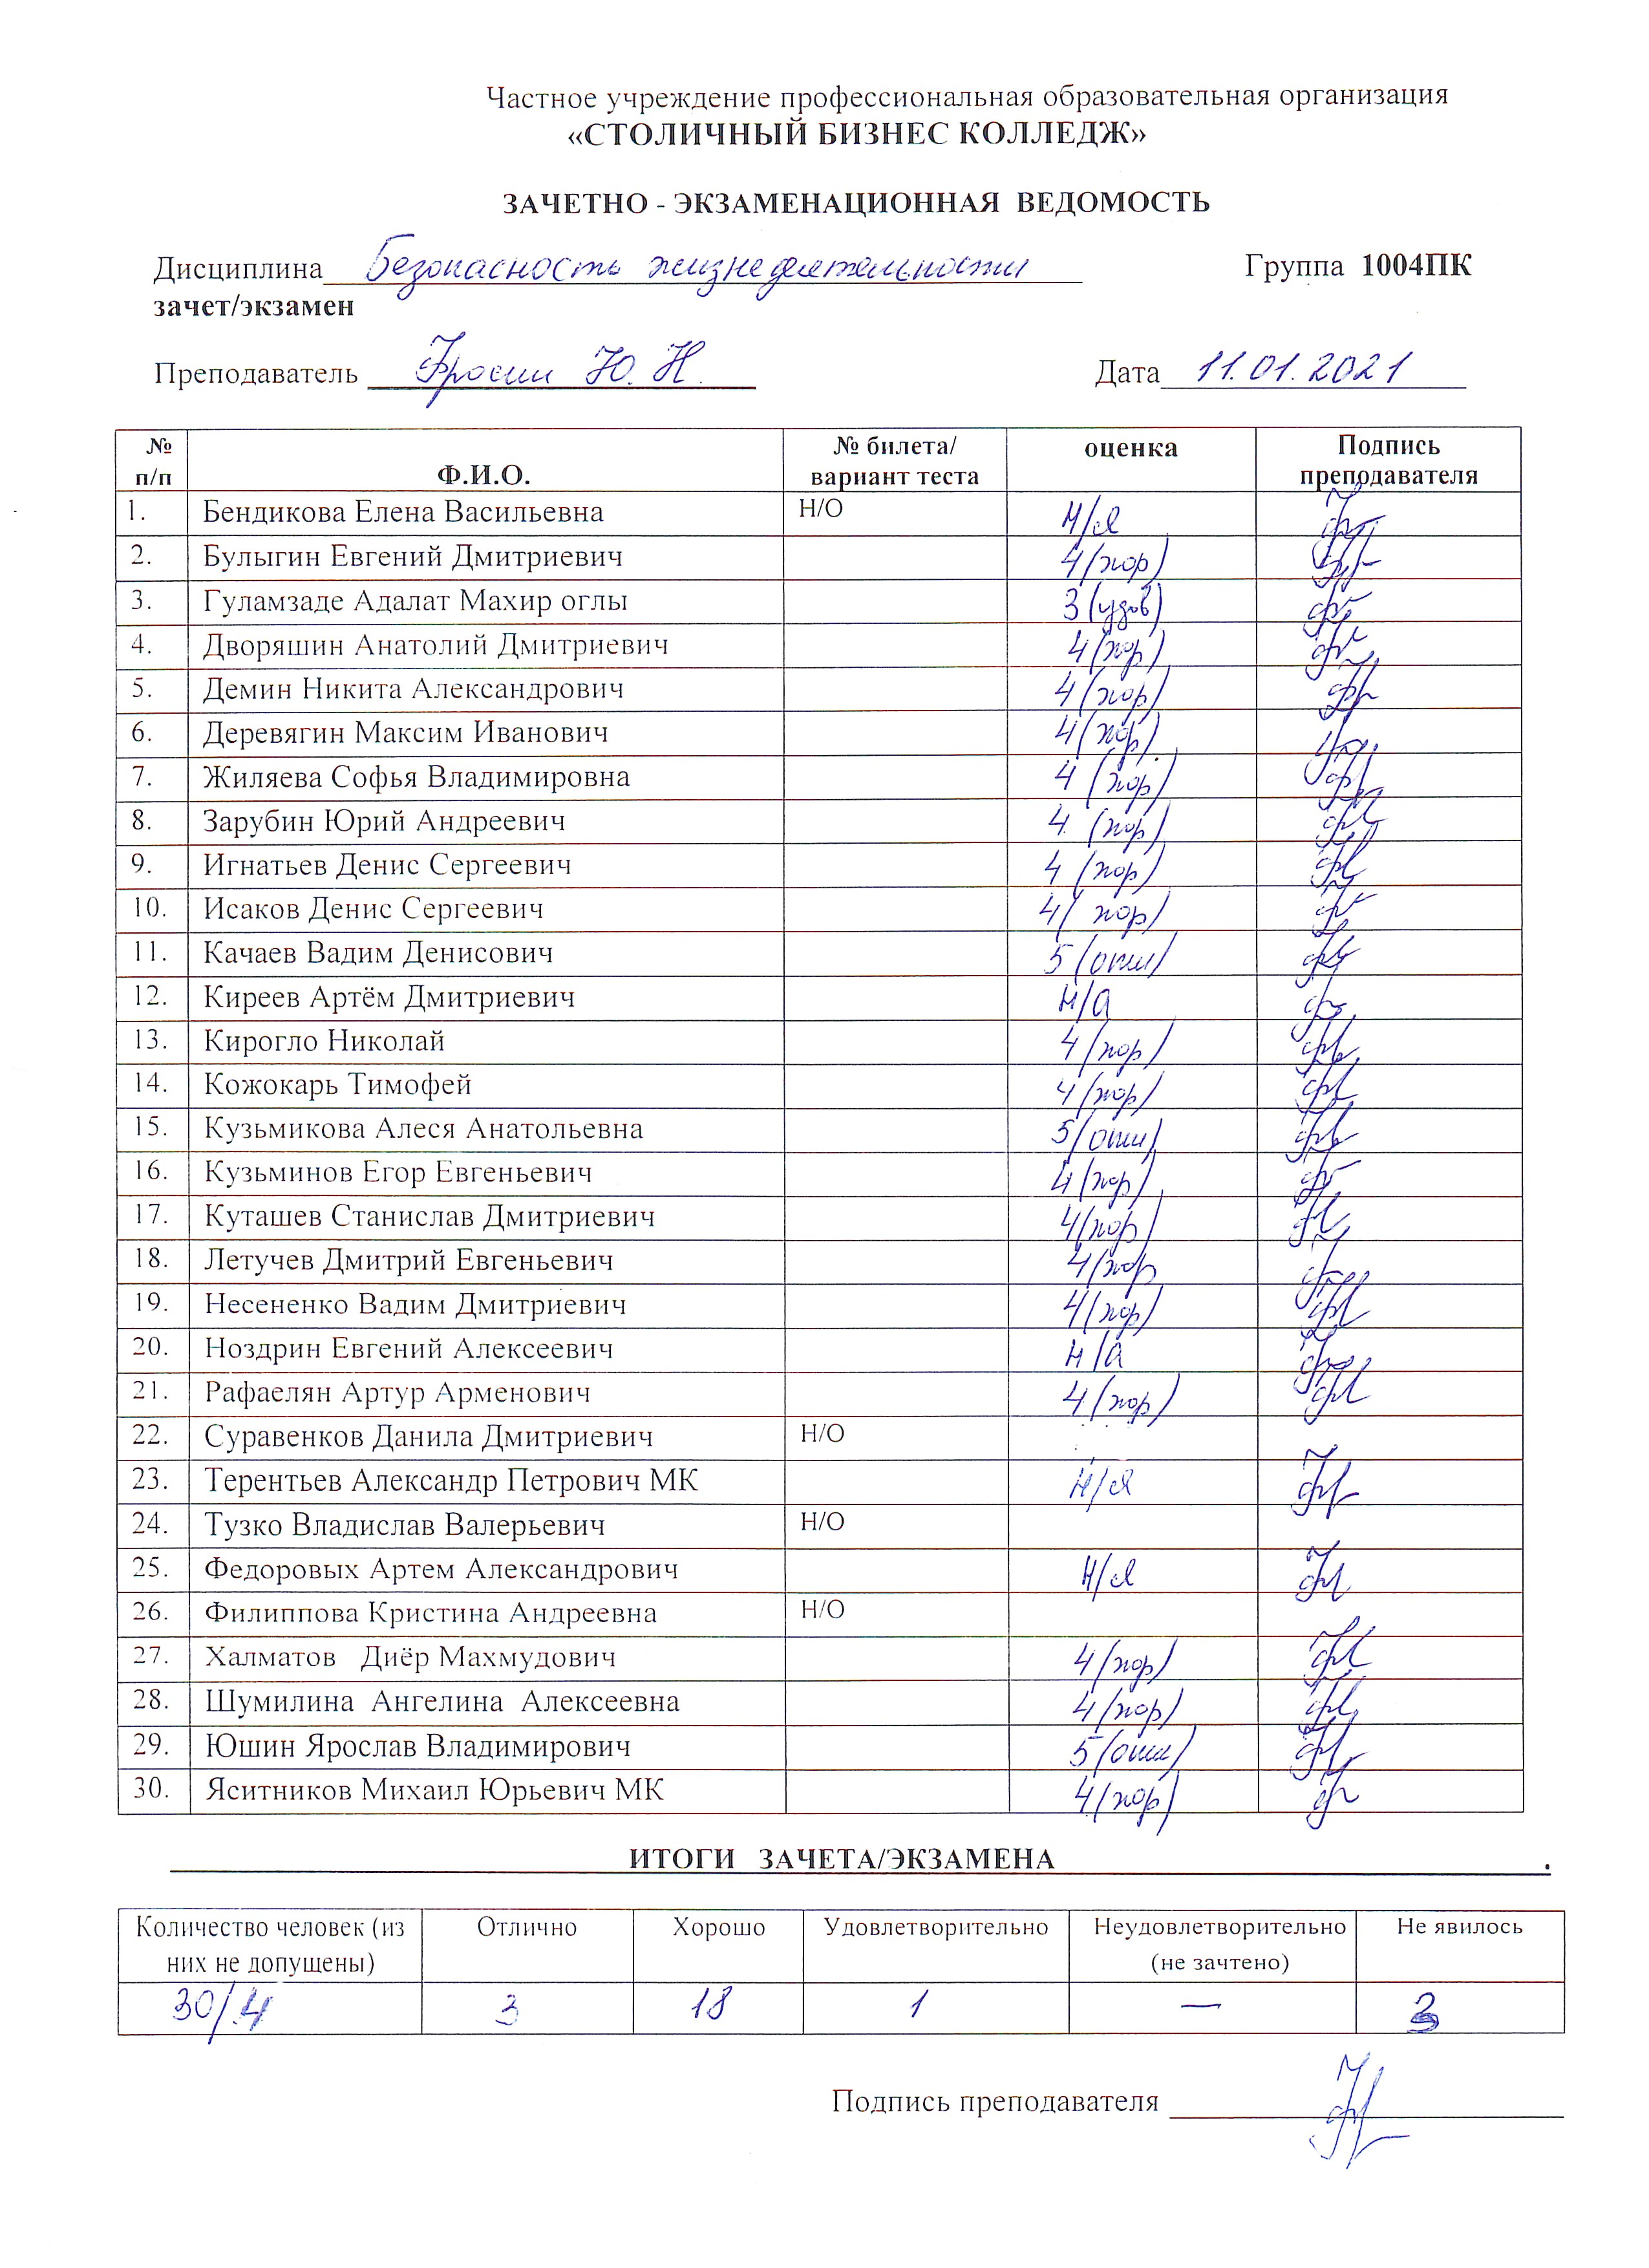 Частное учреждение профессиональная образовательная организация
«СТОЛИЧНЫЙ БИЗНЕС КОЛЛЕДЖ»
ЗАЧЕТНО - ЭКЗАМЕНАЦИОННАЯ ВЕДОМОСТЬ
Дисциплина Безопасность жизнедеятельности Группа 1004ПК
зачет/экзамен
Преподаватель Фросин Ю. Н. Дата 11.01.2021
№ п/п Ф.И.О. № билета/ вариант теста оценка Подпись преподавателя
1. Бендикова Елена Васильевна Н/О Н/Я
2. Булыгин Евгений Дмитриевич 4 (хор)
3. Гуламзаде Адалат Махир оглы 3 (удов)
4. Дворяшин Анатолий Дмитриевич 4 (хор)
5. Демин Никита Александрович 4 (хор)
6. Деревягин Максим Иванович 4 (хор)
7. Жиляева Софья Владимировна 4 (хор)
8. Зарубин Юрий Андреевич 4 (хор)
9. Игнатьев Денис Сергеевич 4 (хор)
10. Исаков Денис Сергеевич 4 (хор)
11. Качаев Вадим Денисович 5 (отл)
12. Киреев Артём Дмитриевич Н/А
13. Кирогло Николай 4 (хор)
14. Кожокарь Тимофей 4 (хор)
15. Кузьмикова Алеся Анатольевна 5 (отл)
16. Кузьминов Егор Евгеньевич 4 (хор)
17. Куташев Станислав Дмитриевич 4 (хор)
18. Летучев Дмитрий Евгеньевич 4 (хор
19. Несененко Вадим Дмитриевич 4 (хор)
20. Ноздрин Евгений Алексеевич Н/А
21. Рафаелян Артур Арменович 4 (хор)
22. Суравенков Данила Дмитриевич Н/О
23. Терентьев Александр Петрович МК Н/Я
24. Тузко Владислав Валерьевич Н/О
25. Федоровых Артем Александрович Н/Я
26. Филиппова Кристина Андреевна Н/О
27. Халматов Диёр Махмудович 4 (хор)
28. Шумилина Ангелина Алексеевна 4 (хор)
29. Юшин Ярослав Владимирович 5 (отл)
30. Яситников Михаил Юрьевич МК 4 (хор)
ИТОГИ ЗАЧЕТА/ЭКЗАМЕНА.
Количество человек (из них не допущены) Отлично Хорошо Удовлетворительно Неудовлетворительно (не зачтено) Не явилось
30/4 3 18 1 — 3
Подпись преподавателя